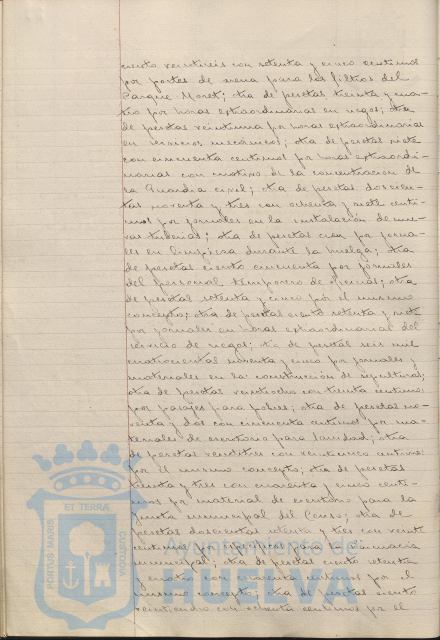 ciento veintiseis con setenta y cinco centimos
por portes de arena para los filtros del
Parque Moret; otra de pesetas treinta y cua-
tro por horas extraordinarias en riegos; otra
de pesetas veintiuna por horas extraordinarias
en servicios mecánicos; otra de pesetas siete
con cincuenta centimos por horas extraordi-
narias con motivo de la concentración de
la Guardia civil; otra de pesetas doscien-
tas noventa y tres con ochenta y siete centi-
mos por jornales en la instalación de nue-
vas tuberias; otra de pesetas cien por jorna-
les en limpieza durante la huelga; otra
de pesetas ciento cincuenta por jornales
del personal temporero de; otra
de pesetas setenta y cinco por el mismo
concepto; otra de pesetas ciento setenta y siete
por jornales en horas extraordinarias del
servicio de riegos; otra de pesetas seis mil
cuatrocientas noventa y cinco por jornales y
materiales en la construcción de sepulturas;
otra de pesetas veintiocho con treinta centimos
por pasajes para pobres; otra de pesetas no-
venta y dos con cincuenta centimos por ma-
teriales de escritorio para Sanidad; otra
de pesetas veintitres con veinticinco centimos
por el mismo concepto; otra de pesetas
treinta y tres con cuarenta y cinco centi-
mos por material de escritorio para la
Junta municipal del Censo; otra de
pesetas doscientas setenta y tres con veinte
centimos por especificos para la farmacia
municipal; otra de pesetas ciento setenta
y cuatro con cuarenta centimos por el
mismo concepto; otra de pesetas ciento
veintiuna con ochenta centimos por el
ET TERRA
PORTUS MARIS
CUSTODIA
Ayuntamiento de
HUELVA